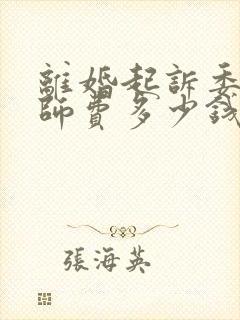 離婚起訴委
師費多少錢
張海英